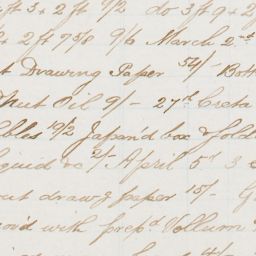 ft 3 + 2 ft 9/2 do 3 ft 9 + 2
2 + 2 ft 7 5/8 9/6 March 2nd
Drawing Paper 54/- Bott
Nut Oil 9/- 27th Creta
bbles 10/2 Japan'd box & fold
iquid &c 2/- April 5th 3
out drawg paper 15/-
on'd with prepd Vellum